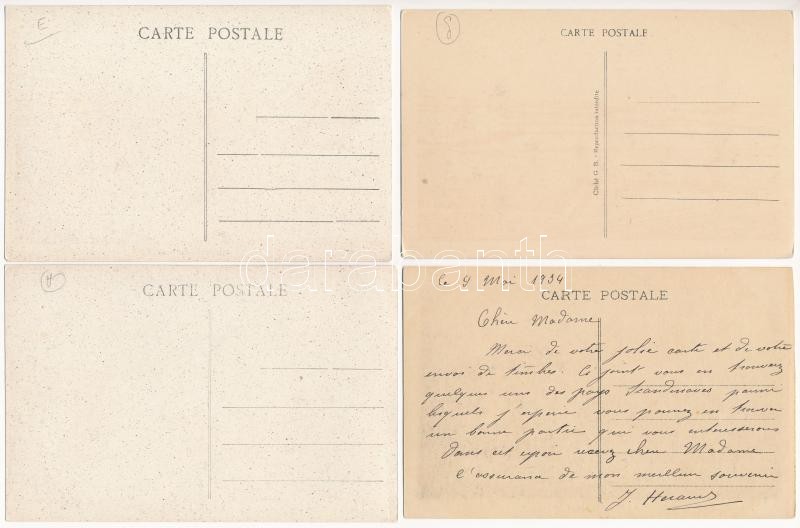 E
CARTE POSTALE
8
CARTE POSTALE
Cliché G. B. - Reproduction interdite
CARTE POSTALE
darabanth
le 4 Mai 1934
CARTE POSTALE
Chère Madame
Merci de votre jolie carte et de votre
envoi de timbres. Ci joint vous en trouverez
quelques uns des pays Scandinaves parmi
lesquels j'espère vous pouvez en trouver
un bonne partie qui vous interesserons
Dans cet espoir recevez chère Madame
l'assurance de mon meilleur souvenir
J.